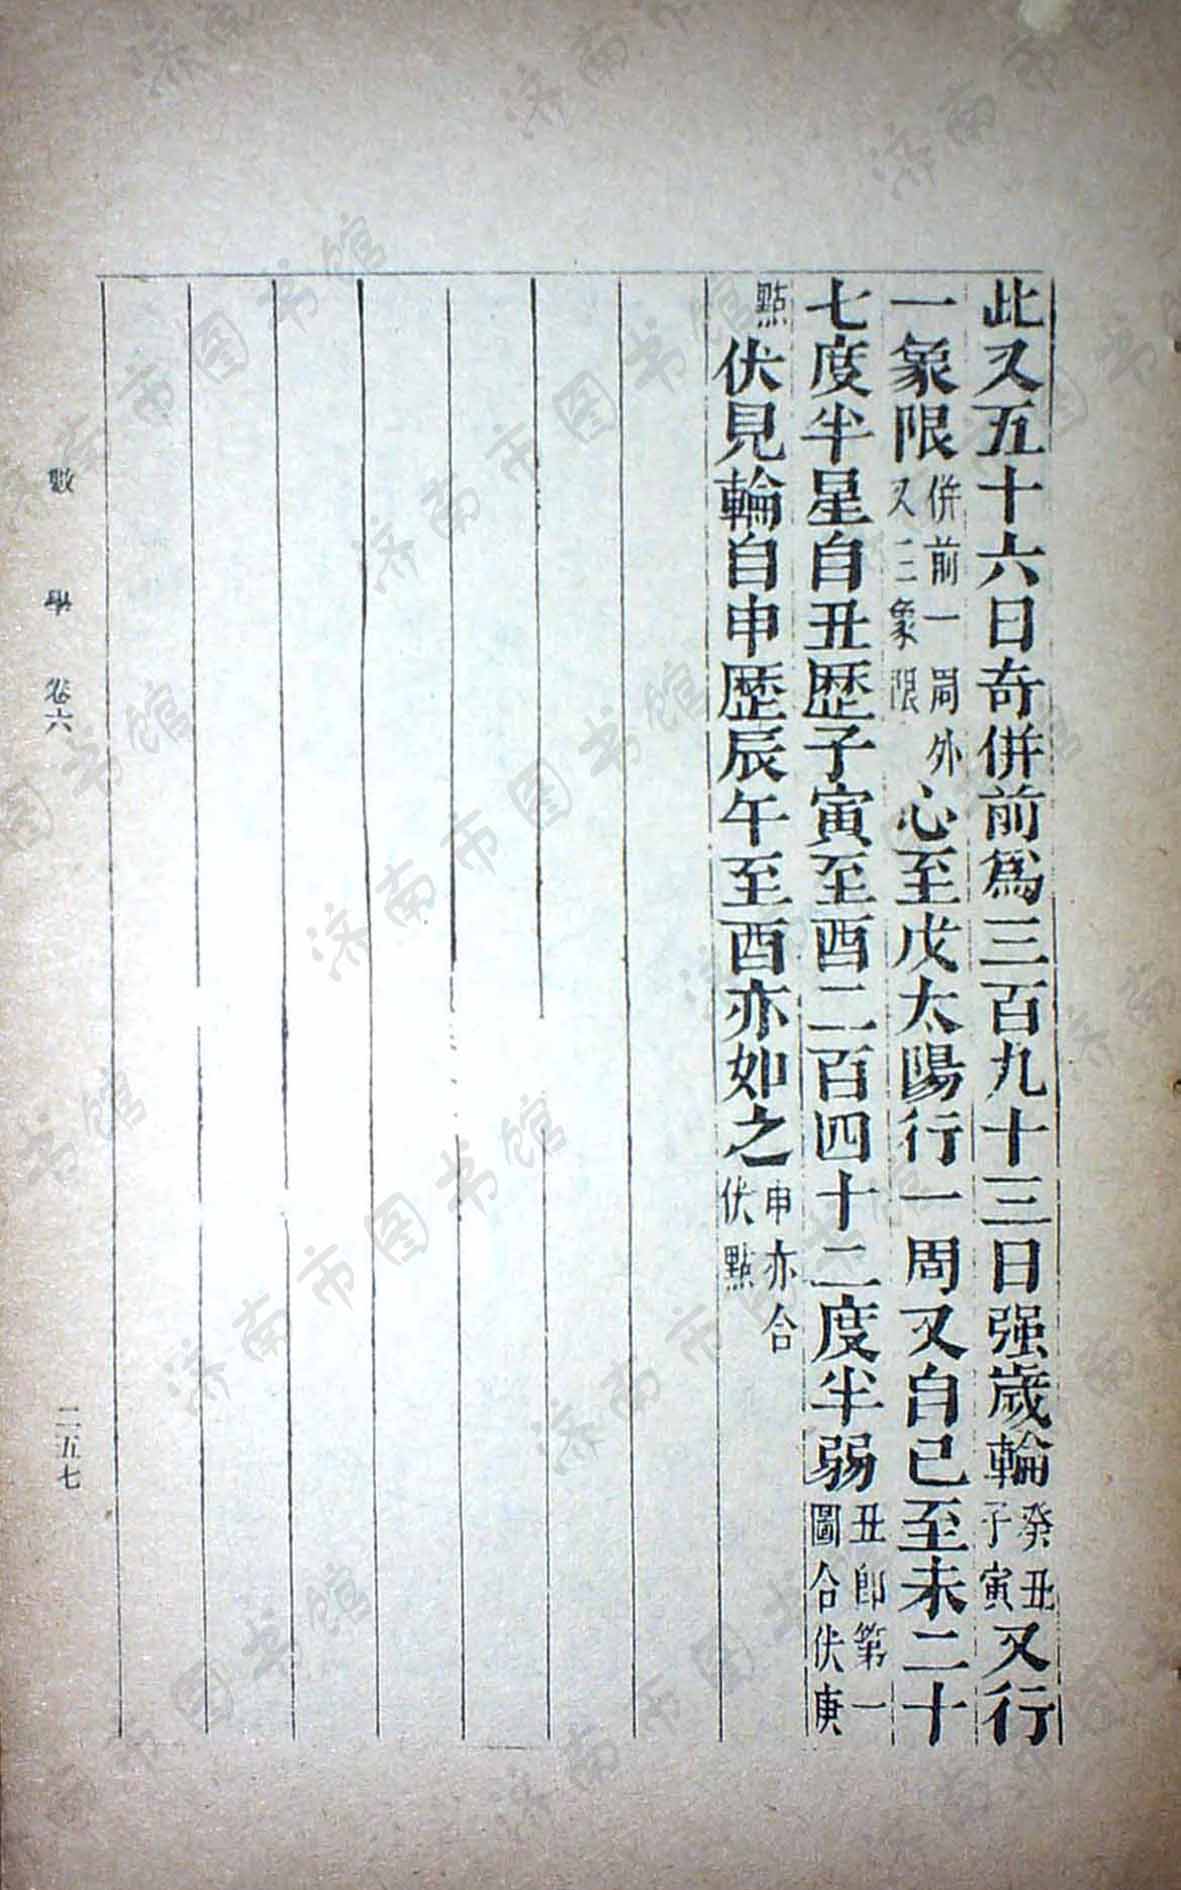 此又五十六日奇併前爲三百九十三日强歲輪癸丑子寅又行
一象限併前一周外又三象限心至戊太陽行一周又自己至未二十
七度半星自丑歷子寅至酉二百四十二度半弱丑郎第一圖合伏庚
點伏見輪自申歷辰午至酉亦如之申亦合伏點
數學 卷六 二五七
济南市图书馆